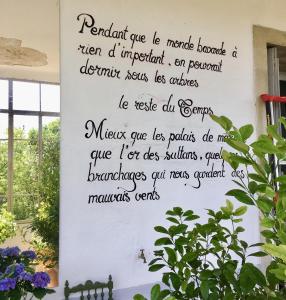 Pendant que le monde bavarde à
rien d'important, on pourrait
dormir sous les arbres
le reste du Temps
Mieux que les palais de
que l'or des sultans,
branchages qui nous gardent des
mauvais vents